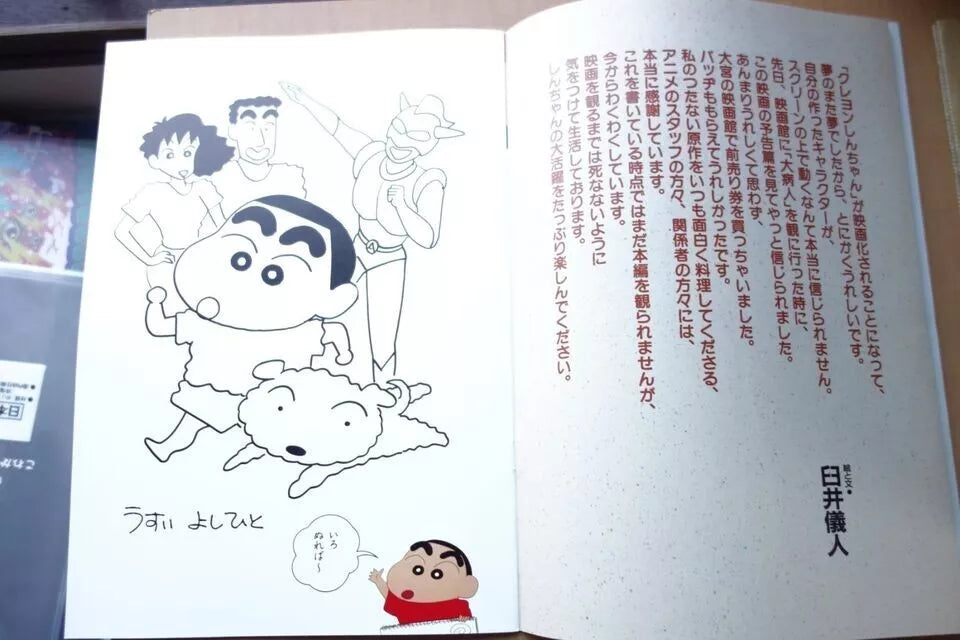 「クレヨンしんちゃん」が映画化されることになって、
夢のまた夢でしたから、とにかくうれしいです。
自分の作ったキャラクターが、
スクリーンの上で動くなんて本当に信じられません。
先日、映画館に“大病人”を観に行った時に、
この映画の予告篇を見てやっと信じられました。
あんまりうれしくて思わず、
大宮の映画館で前売り券を買っちゃいました。
バッヂももらえてうれしかったです。
私のつたない原作をいつも面白く料理してくださる、
アニメのスタッフの方々、関係者の方々には、
本当に感謝しています。
これを書いている時点ではまだ本編を観られませんが、
今からわくわくしています。
映画を観るまでは死なないように
気をつけて生活しております。
しんちゃんの大活躍をたっぷり楽しんでください。
絵と文・
臼井儀人
うすい よしひと
いろ
ぬれば〜
日本
これか